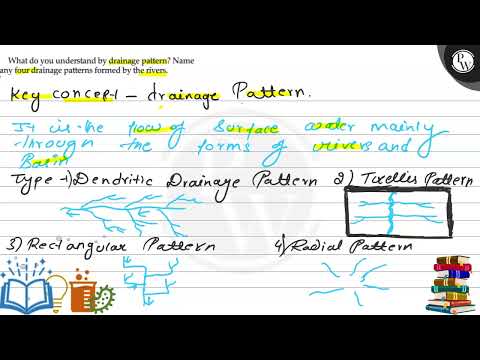 What do you understand by drainage pattern? Name
any four drainage patterns formed by the rivers.
Key concept - drainage Pattern.
It is the flow of surface water mainly
through the forms of rivers and
Basin
Type -1) Dendritic Drainage Pattern 2) Trellis Pattern
3) Rectangular Pattern 4) Radial Pattern